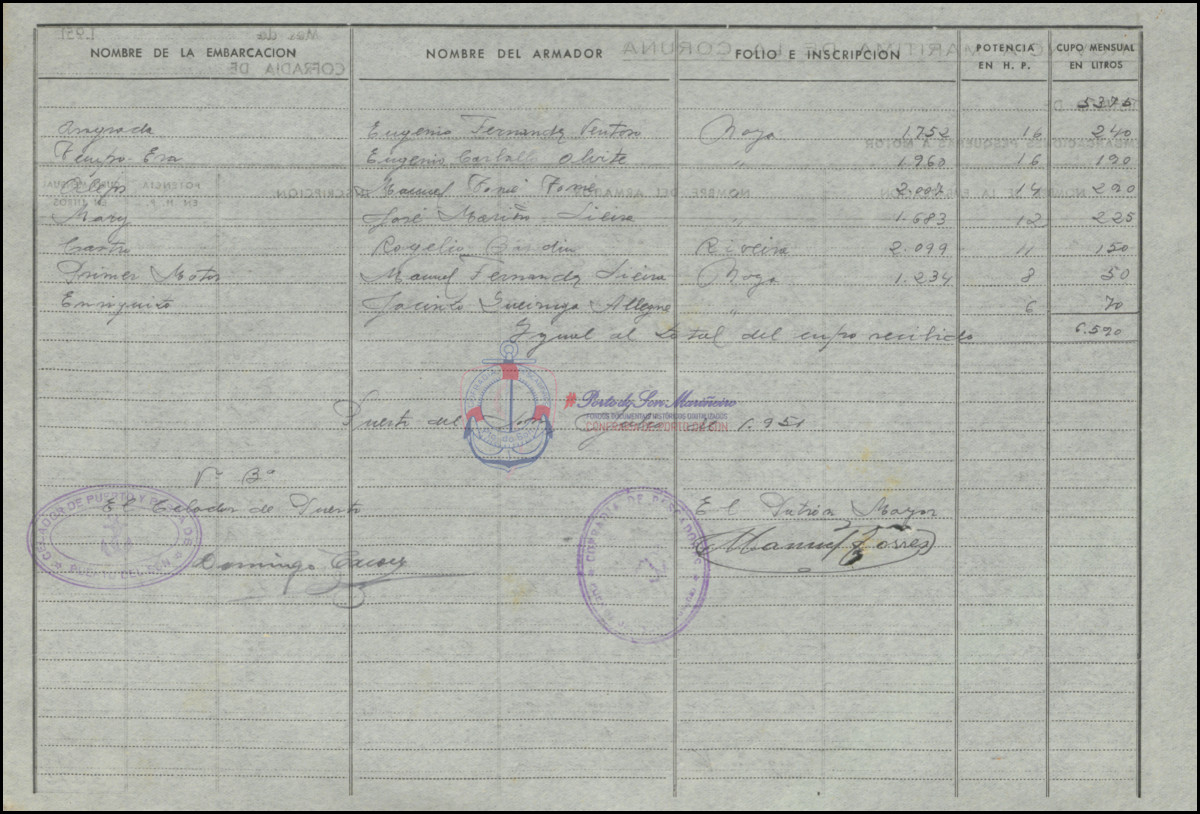 NOMBRE DE LA EMBARCACION NOMBRE DEL ARMADOR FOLIO E INSCRIPCION POTENCIA EN H. P. CUPO MENSUAL EN LITROS
5375
Eugenio Fernandez Noya 1.752 16 240
Eugenio Carballo Olveite " 1.960 16 190
Manuel Tomé Tomé " 2.007 14 290
Mary José Mariño Sieira " 1.683 12 225
Castro Rogelio Riveira 2.099 11 150
Primer Motor Manuel Fernandez Sieira Noya 1.234 8 50
Enriquito Jacinto Allegue " 6 70
Ygual al total del cupo recibido 6.590
Porto do Son Mariñeiro
FONDOS DOCUMENTAIS HISTÓRICOS DIXITALIZADOS
CONFRARÍA DE PORTO DO SON
Puerto del Son de 1.951
Vº Bº
El Celador de Puerto El Patrón Mayor
CELADOR DE PUERTO Y PESCADOS
PUERTO DEL SON
COFRADIA DE PESCADORES
Domingo
Manuel Torres